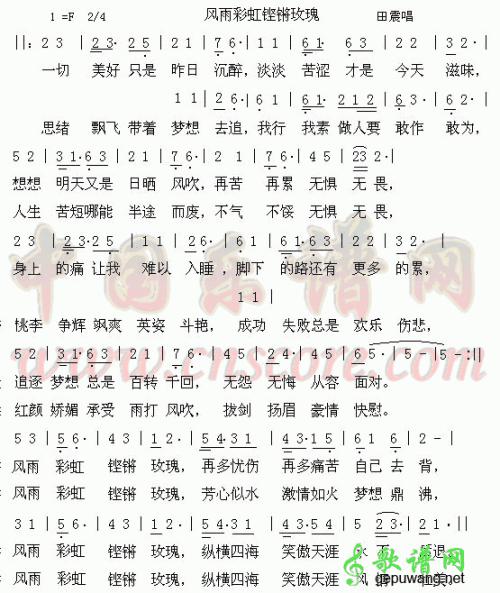 1 =F 2/4 风雨彩虹铿锵玫瑰 田震唱
||: 2 3 | 2 3· | 2 5· | 2 1 | 7 6· | 6 1 | 6 3· | 2 2 | 3 2· |
一切 美好 只是 昨日 沉醉，淡淡 苦涩 才是 今天 滋味，
1 1 | 7 6· | 6 1 | 6 1· | 2 1 2 | 6 3· | 2 2· |
思绪 飘飞 带着 梦想 去追，我行 我素 做人要 敢作 敢为，
5 2 | 3 1·6 3 | 2 1 | 7 6· | 2 1 | 7 6· | 4 5 | 2 3 2·|
想想 明天又是 日晒 风吹，再苦 再累 无惧 无畏，
人生 苦短哪能 半途 而废，不气 不馁 无惧 无畏，
2 3 | 2 3·2 5 | 1 1 | 2 6· | 6 1 | 6 1·6 3 | 2 2 | 3 2· |
身上 的痛 让我 难以 入睡，脚下 的路还有 更多 的累，
1 1 |
桃李 争辉 飒爽 英姿 斗艳， 成功 失败总是 欢乐 伤悲，
5 2 | 3 1·6 3 | 2 1 | 7 6· | 4 5 | 2 4· | 4 5 | 6 5· | 5 - | 5 -:||
追逐 梦想 总是 百转 千回， 无怨 无悔 从容 面对。
红颜 娇媚 承受 雨打 风吹， 拔剑 扬眉 豪情 快慰。
5 3 | 5 6· | 4 3 | 1 2· | 5 4·3 1 | 4 3·1 5 | 6 1 6 | 2 - |
风雨 彩虹 铿锵 玫瑰，再多忧伤 再多痛苦 自己 去 背，
风雨 彩虹 铿锵 玫瑰，芳心似水 激情如火 梦想 鼎 沸，
3 1 | 5 6· | 4 3 | 1 2· | 5 4·3 1 | 4 3·1 5 | 5 2 3· | 2 1·||
风雨 彩虹 铿锵 玫瑰，纵横四海 笑傲天涯 永不
风雨 彩虹 铿锵 玫瑰，纵横四海 笑傲天涯 风
中国乐谱网
www.cnscore.com
歌谱网
gepuwang.net